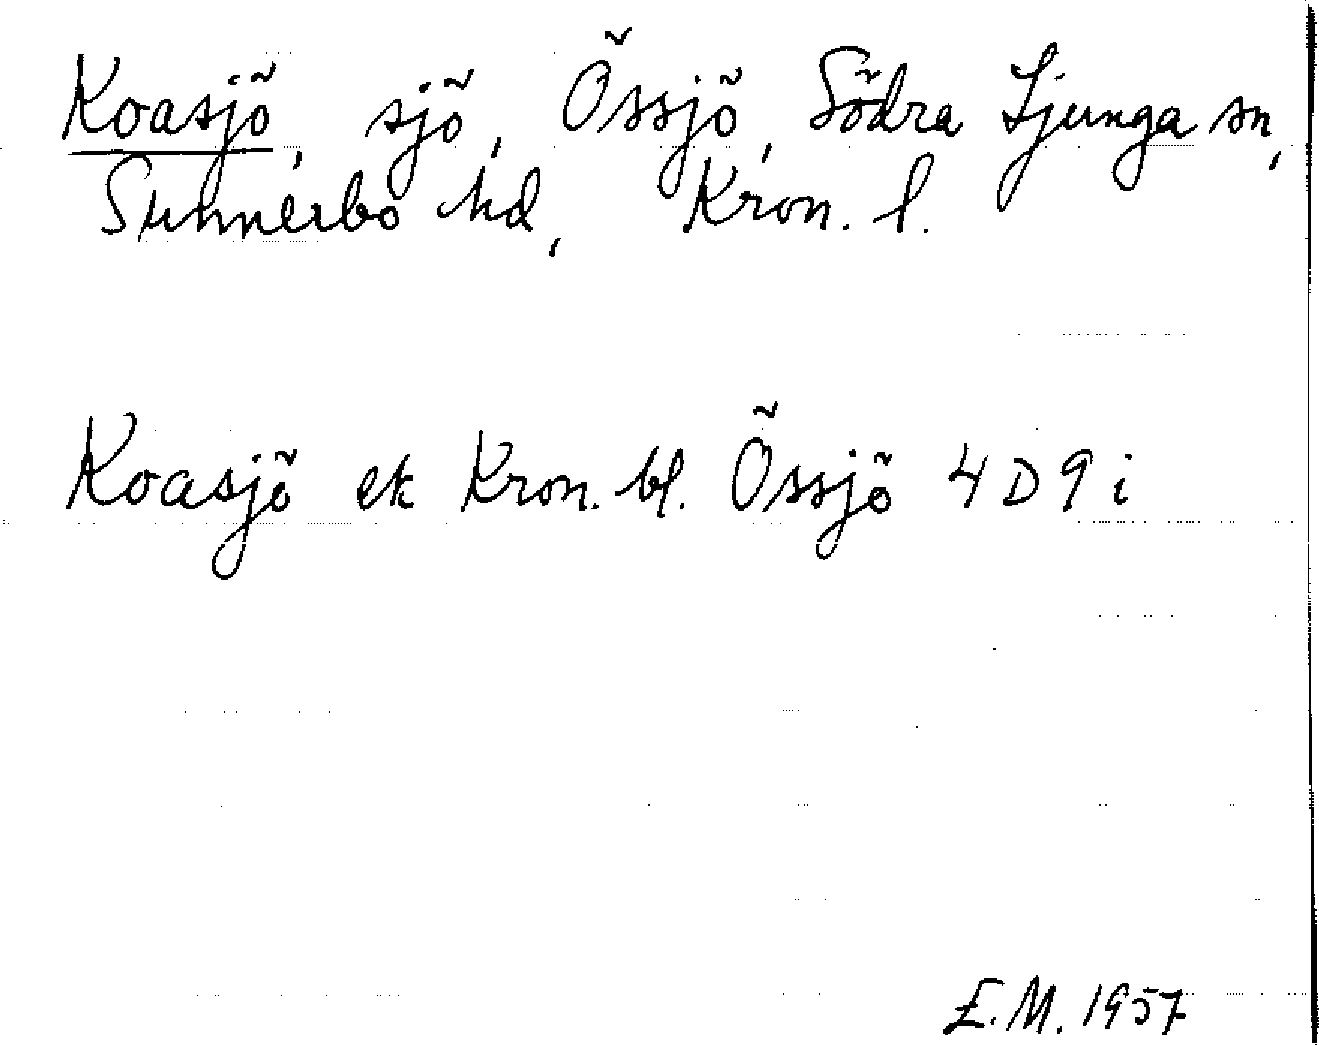 Koasjö, sjö, Össjö, Södra Ljunga sn,
Sunnerbo hd, Kron. l.
Koasjö ek Kron. bl. Össjö 4 D 9 i
E.M. 1957